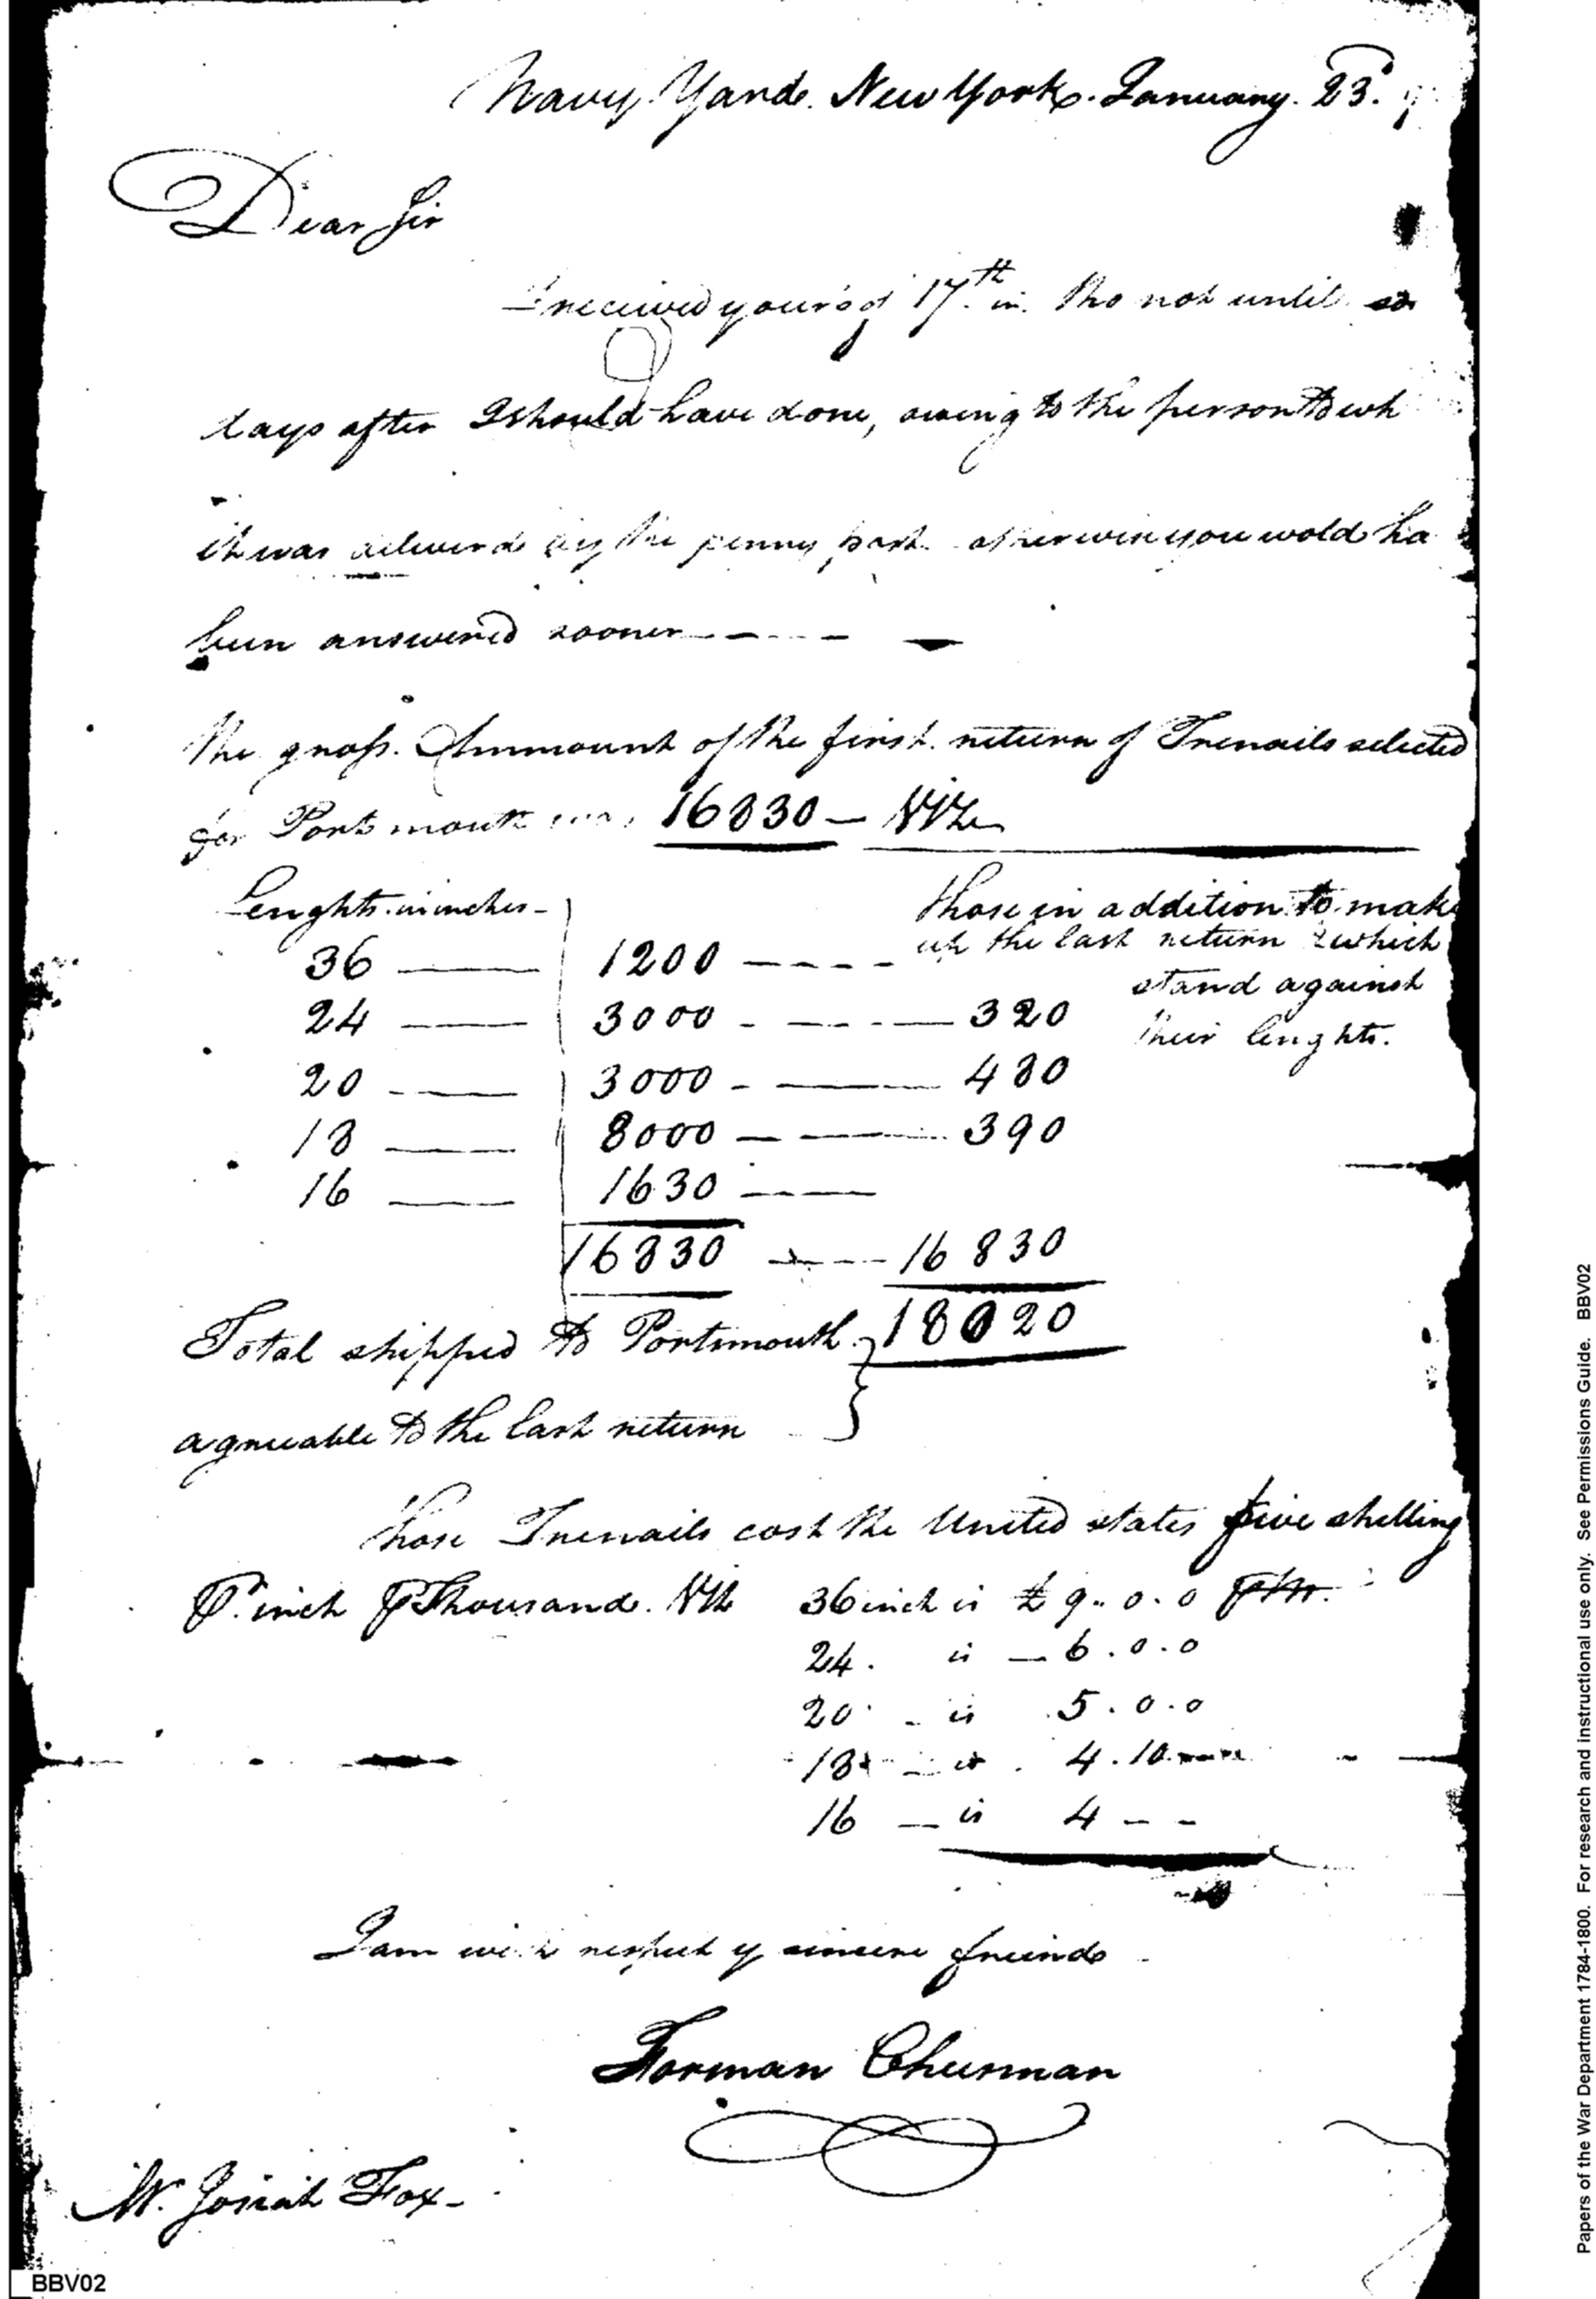 Navy Yard. New York. January. 23d.
Dear Sir
I received yours of 17th in. tho not until so
days after I should have done, owing to the person to wh
it was deliverd by the penny post otherwise you wold ha
been answered sooner
the gross. Ammount of the first. return of Trenails selected
for Portsmouth was 16830 — Viz
Lenghts in inches - those in addition to make
36 — 1200 - - - - up the last return & which
stand against
24 — 3000 - - - - 320 their lenghts.
20 — 3000 - — 480
18 — 8000 — — 390
16 — 1630 - - -
16830 - - - 16830
Total shipped to Portsmouth } 18020
agreeable to the last return
those Trenails cost the United states five shilling
Pr. inch Pr Thousand. Viz 36 inch is £ 9.. 0. 0 pr M.
24. is — 6. 0. 0
20 - is 5. 0. 0
18 - is 4. 10.
16 — is 4 - -
I am with respect yr sincere freind
Forman Cheesman
Mr. Josiah Fox -
BBV02
Papers of the War Department 1784-1800. For research and instructional use only. See Permissions Guide. BBV02